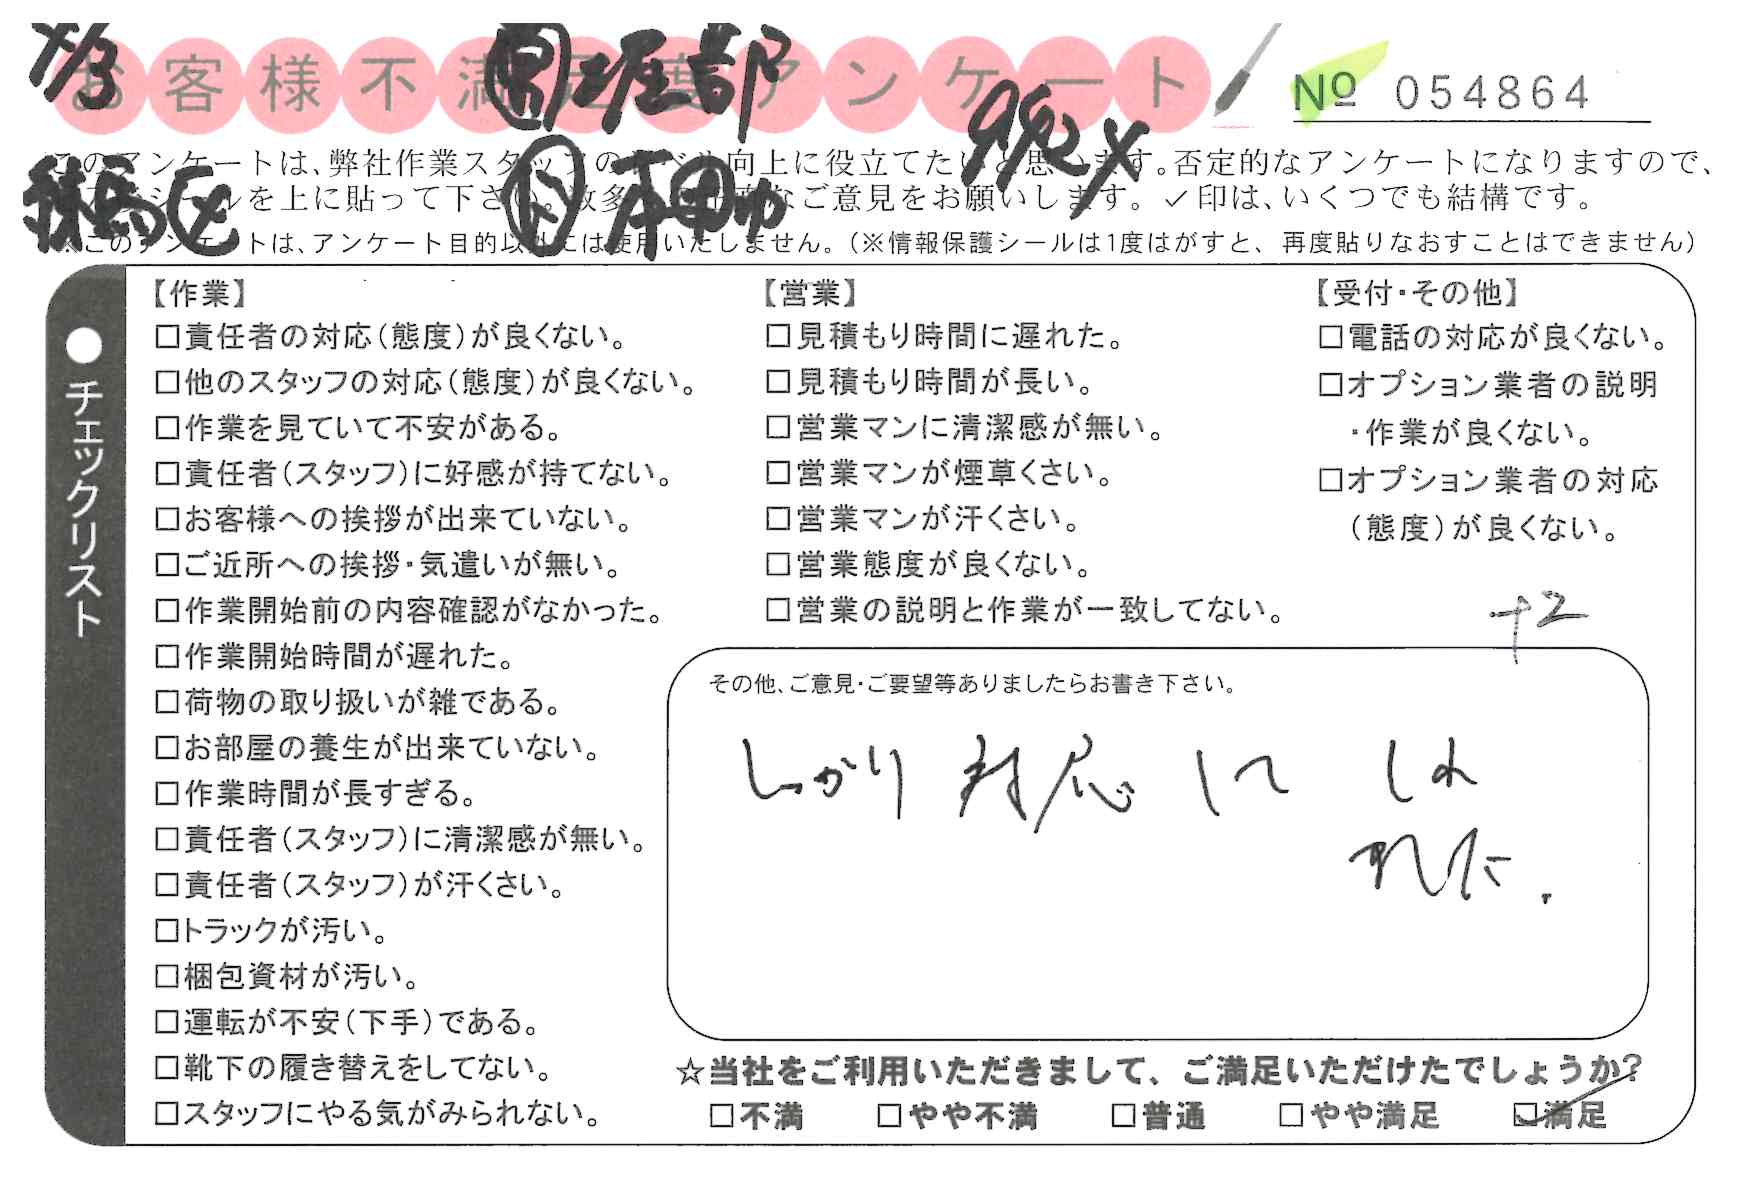 お客様不満足度アンケート
№ 054864
このアンケートは、弊社作業スタッフのレベル向上に役立てたいと思います。否定的なアンケートになりますので、
シールを上に貼って下さい。数多 なご意見をお願いします。✓印は、いくつでも結構です。
※このアンケートは、アンケート目的以外には使用いたしません。(※情報保護シールは1度はがすと、再度貼りなおすことはできません)
練馬区
●チェックリスト
【作業】
□責任者の対応(態度)が良くない。
□他のスタッフの対応(態度)が良くない。
□作業を見ていて不安がある。
□責任者(スタッフ)に好感が持てない。
□お客様への挨拶が出来ていない。
□ご近所への挨拶・気遣いが無い。
□作業開始前の内容確認がなかった。
□作業開始時間が遅れた。
□荷物の取り扱いが雑である。
□お部屋の養生が出来ていない。
□作業時間が長すぎる。
□責任者(スタッフ)に清潔感が無い。
□責任者(スタッフ)が汗くさい。
□トラックが汚い。
□梱包資材が汚い。
□運転が不安(下手)である。
□靴下の履き替えをしてない。
□スタッフにやる気がみられない。
【営業】
□見積もり時間に遅れた。
□見積もり時間が長い。
□営業マンに清潔感が無い。
□営業マンが煙草くさい。
□営業マンが汗くさい。
□営業態度が良くない。
□営業の説明と作業が一致してない。
【受付・その他】
□電話の対応が良くない。
□オプション業者の説明
・作業が良くない。
□オプション業者の対応
(態度)が良くない。
+2
その他、ご意見・ご要望等ありましたらお書き下さい。
しっかり 対応 して
れた.
☆当社をご利用いただきまして、ご満足いただけたでしょうか?
□不満 □やや不満 □普通 □やや満足 ☑満足